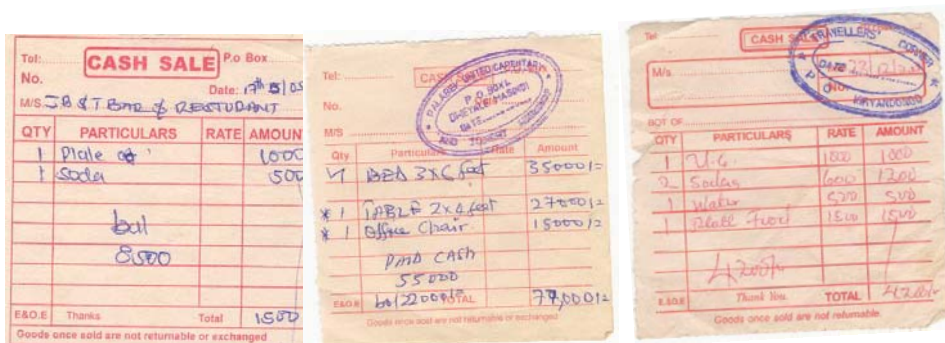 Tel: CASH SALE P.o Box
No. Date: 17th
M/S. J.B & T BAR & RESTUDANT
QTY PARTICULARS RATE AMOUNT
1 Plate of 1000
1 Soda 500
bal
8500
E&O.E Thanks Total 1500
Goods once sold are not returnable or exchanged
UNITED CARPENTARY
P.O. BOX
DATE
AND
Tel: CASH
No.
M/S
Qty Particulars Rate Amount
1 BED 3x6 feet 35000/=
* 1 TABLE 2x4 feet 27000/=
* 1 Office Chair 15000/=
PAID CASH
55000
E&O.E bal 22000/= TOTAL 77,000/=
Goods once sold are not returnable or exchanged
TRAVELLERS' CORNER
DATE
KIRYANDONGO
Tel CASH SALE
M/s
QTY PARTICULARS RATE AMOUNT
1 1000 1000
2 Sodas 600 1200
1 Water 500 500
1 Plate Food 1500 1500
4200/=
E.&O.E Thank You TOTAL 4200/=
Goods once sold are not returnable.